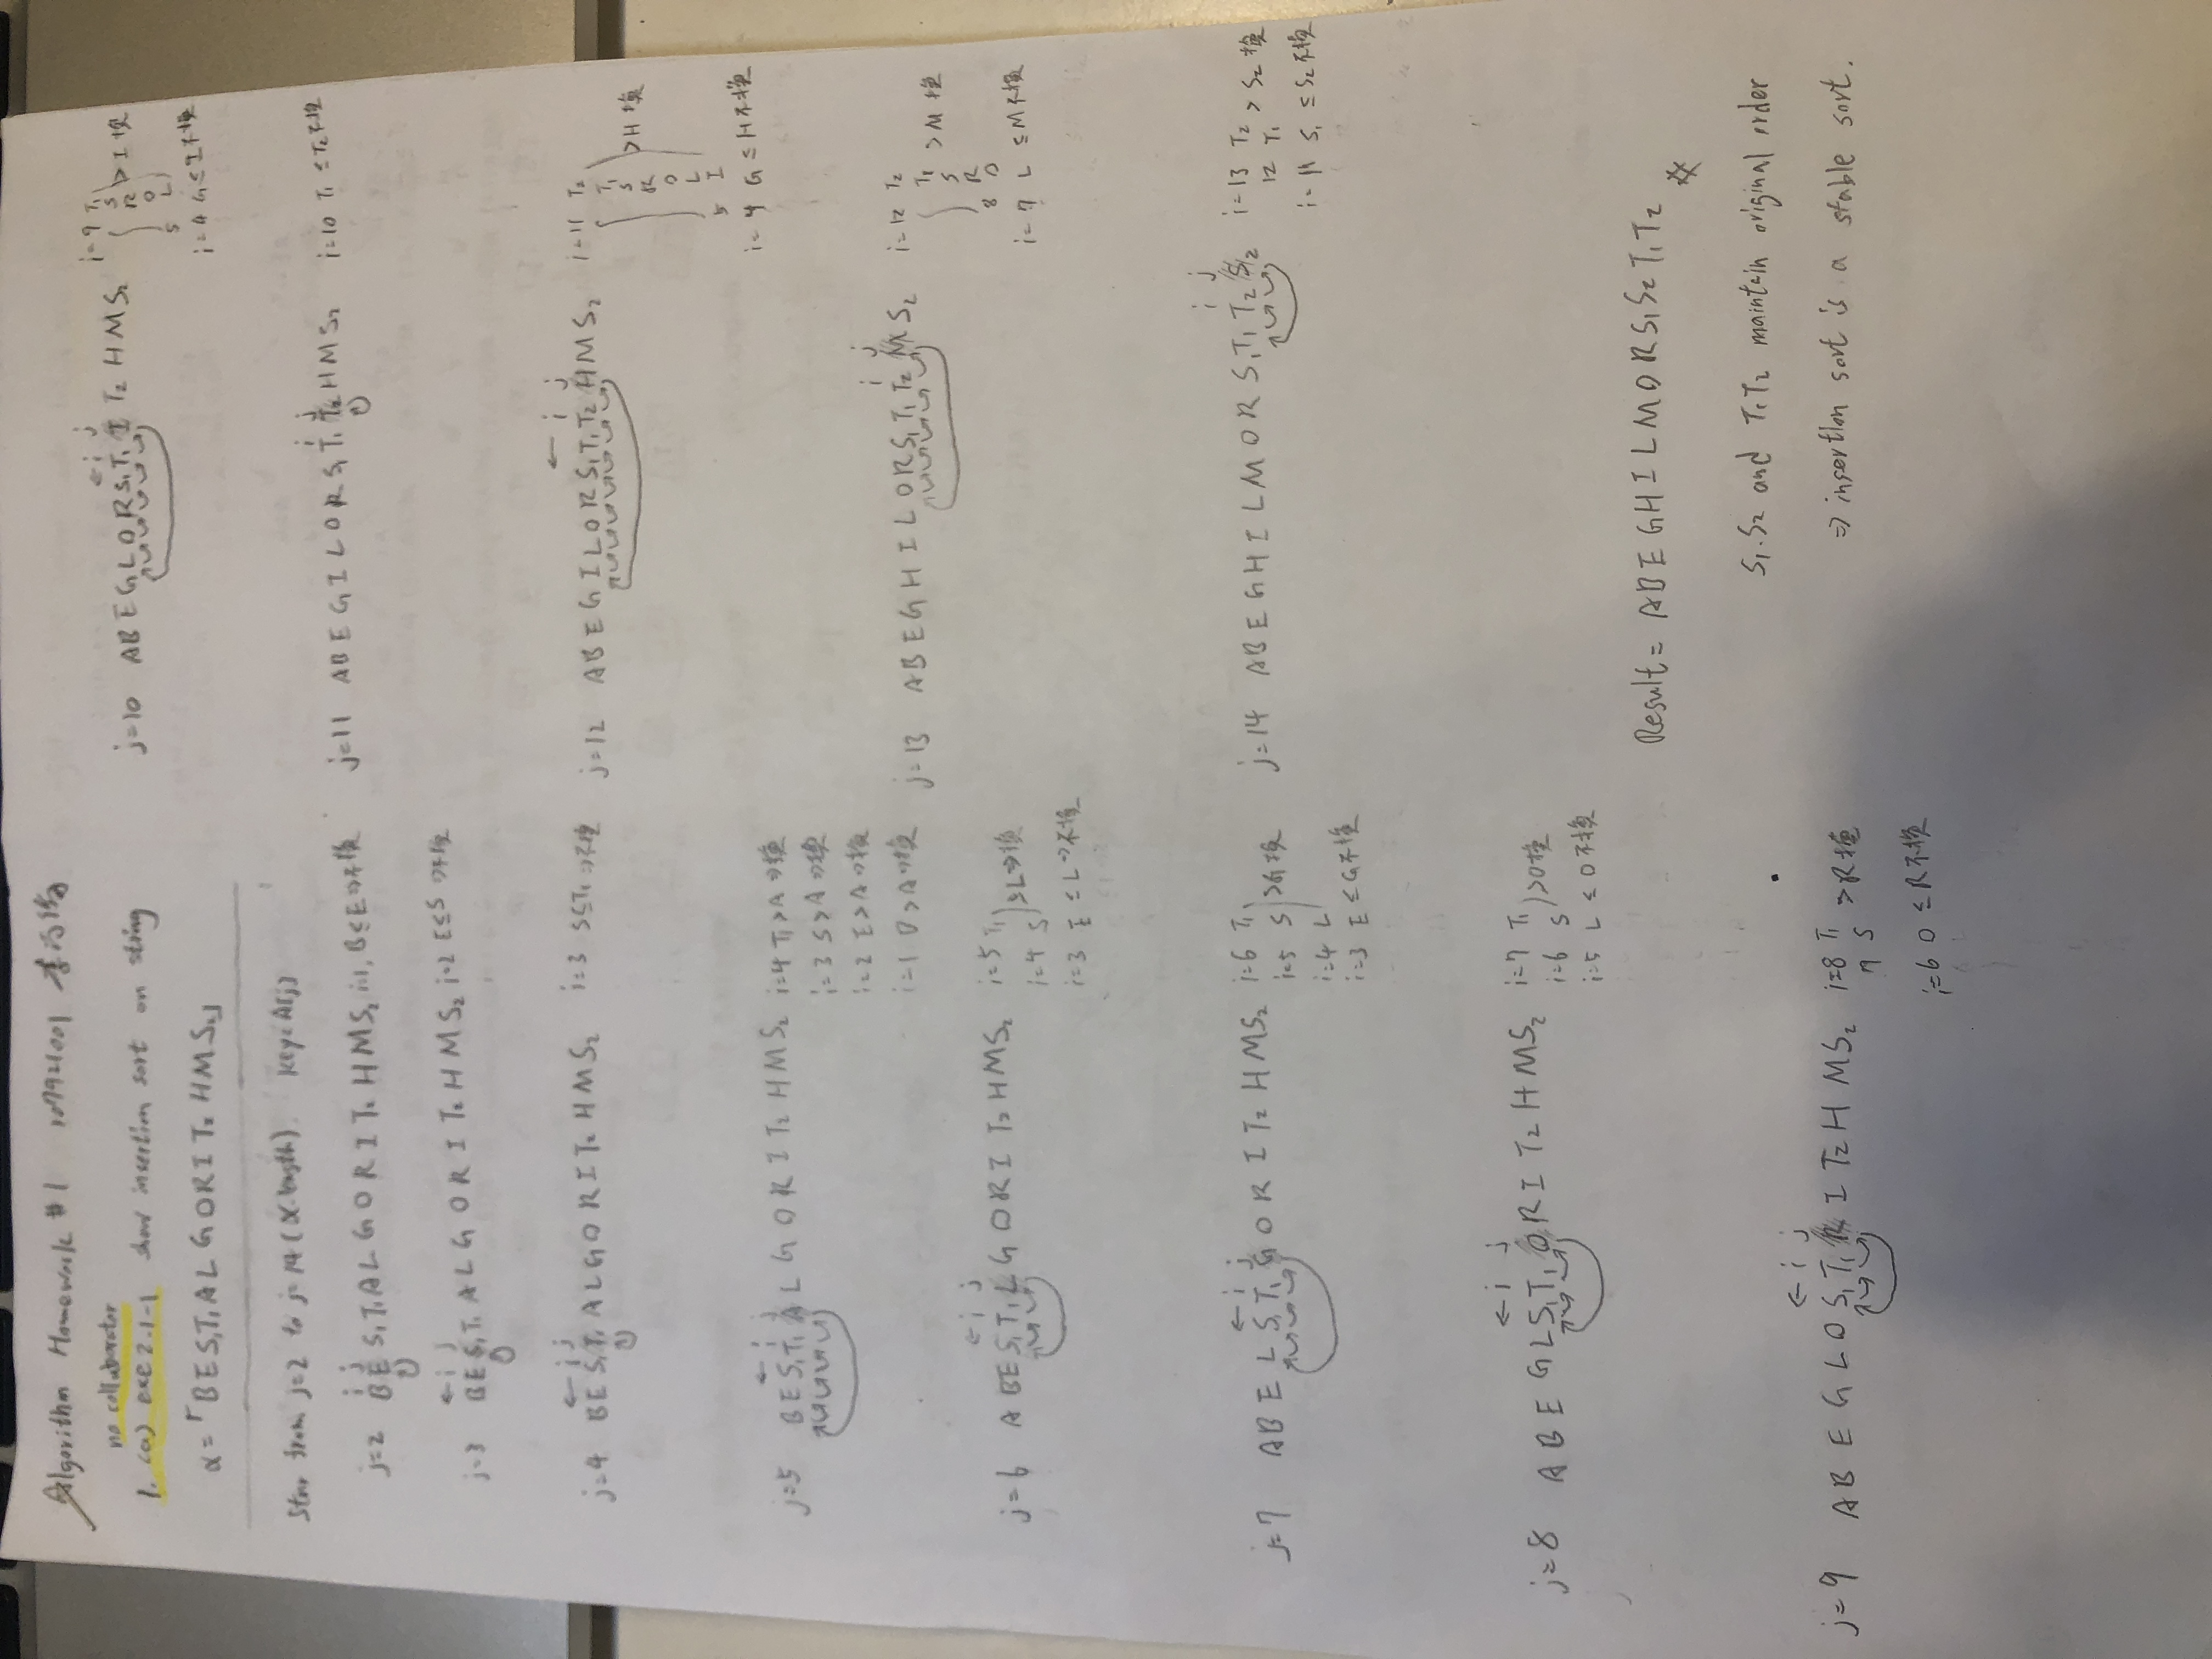 Algorithm Homework #1 107921001
no collaborator
1. (a) exe 2.1-1 show insertion sort on string
α=「BES₁T₁ALGORIT₂HMS₂」
Star from j=2 to j=14 (α.length) key=A[j]
i j
j=2 BES₁T₁ALGORIT₂HMS₂ i=1, B≤E⇒不換
←i j
j=3 BES₁T₁ALGORIT₂HMS₂ i=2 E≤S ⇒不換
←i j
j=4 BES₁T₁ALGORIT₂HMS₂ i=3 S≤T₁⇒不換
← i j
j=5 BES₁T₁ALGORIT₂HMS₂ i=4 T₁>A⇒換
i=3 S>A⇒換
i=2 E>A⇒換
i=1 B>A⇒換
←i j
j=6 ABES₁T₁LGORIT₂HMS₂ i=5 T₁
i=4 S >L⇒換
i=3 E≤L⇒不換
←i j
j=7 ABELS₁T₁GORIT₂HMS₂ i=6 T₁
i=5 S >G換
i=4 L
i=3 E≤G不換
←i j
j=8 ABEGLS₁T₁ORIT₂HMS₂ i=7 T₁
i=6 S >O換
i=5 L≤O不換
←i j
j=9 ABEGLOS₁T₁RIT₂HMS₂ i=8 T₁
7 S >R換
i=6 O≤R不換
←i j
j=10 ABEGLORS₁T₁IT₂HMS₂ i=9 T₁
S
R >I換
O
5 L
i=4 G≤I不換
i j
j=11 ABEGILORS₁T₁T₂HMS₂ i=10 T₁≤T₂不換
← i j
j=12 ABEGILORS₁T₁T₂HMS₂ i=11 T₂
T₁
S >H換
R
O
L
5 I
i=4 G≤H不換
i j
j=13 ABEGHILORS₁T₁T₂MS₂ i=12 T₂
T₁ >M換
S
R
8 O
i=7 L≤M不換
i j
j=14 ABEGHILMORS₁T₁T₂S₂ i=13 T₂
12 T₁ >S₂換
i=11 S₁≤S₂不換
Result= ABEGHILMORS₁S₂T₁T₂
S₁.S₂ and T₁T₂ maintain original order
⇒ insertion sort is a stable sort.